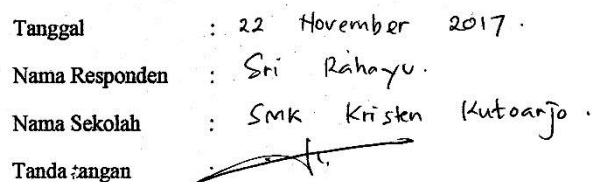 Tanggal : 22 November 2017.
Nama Responden : Sri Rahayu.
Nama Sekolah : SMK Kristen Kutoarjo.
Tanda tangan :